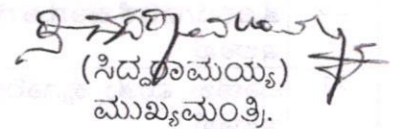 (ಸಿದ್ದರಾಮಯ್ಯ)
ಮುಖ್ಯಮಂತ್ರಿ.